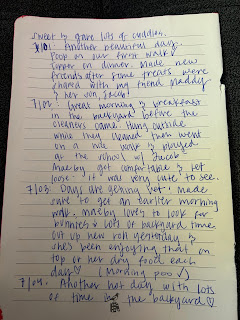 sweet & gave lots of cuddles.
7/01: Another beautiful day.
Poop on our first walk &
topper on dinner. Made new
friends after some treats were
shared with my friend Maddy
& her son, Jacob!
7/02: Great morning & breakfast
in the backyard before the
cleaners came. Hung outside
while they cleaned then went
on a nice walk & played
at the school w/ Jacob.
Maeby got comfortable & let
loose - it was very cute to see.
7/03: Days are getting hot. Made
sure to get an earlier morning
walk. Maeby loves to look for
bunnies & lots of backyard time.
Cut up new roll yesterday &
she's been enjoying that on
top of her dry food each
day ♡ (Morning poo ✓)
7/04: Another hot day with lots
of time in the backyard ♡